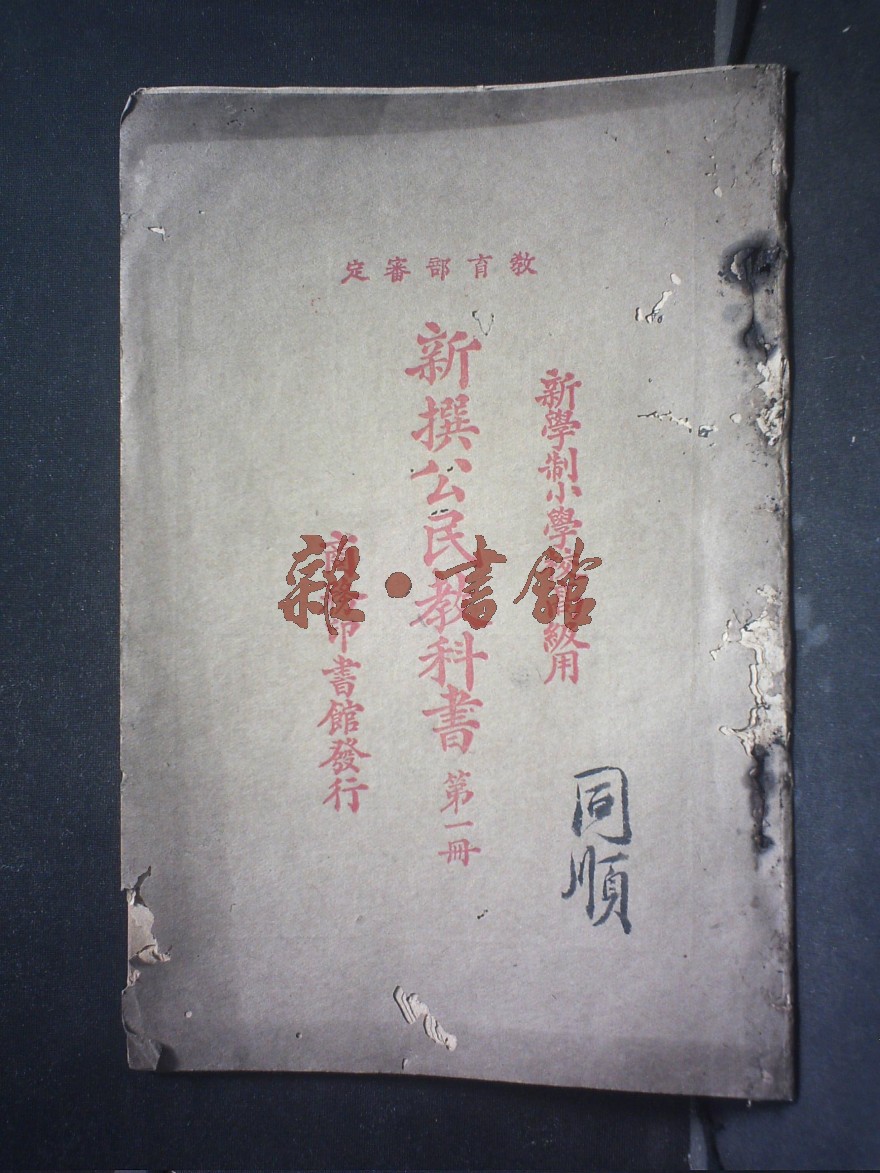 教育部審定
新學制小學校高級用
新撰公民教科書 第一冊
商務印書館發行
同順
雜·書館